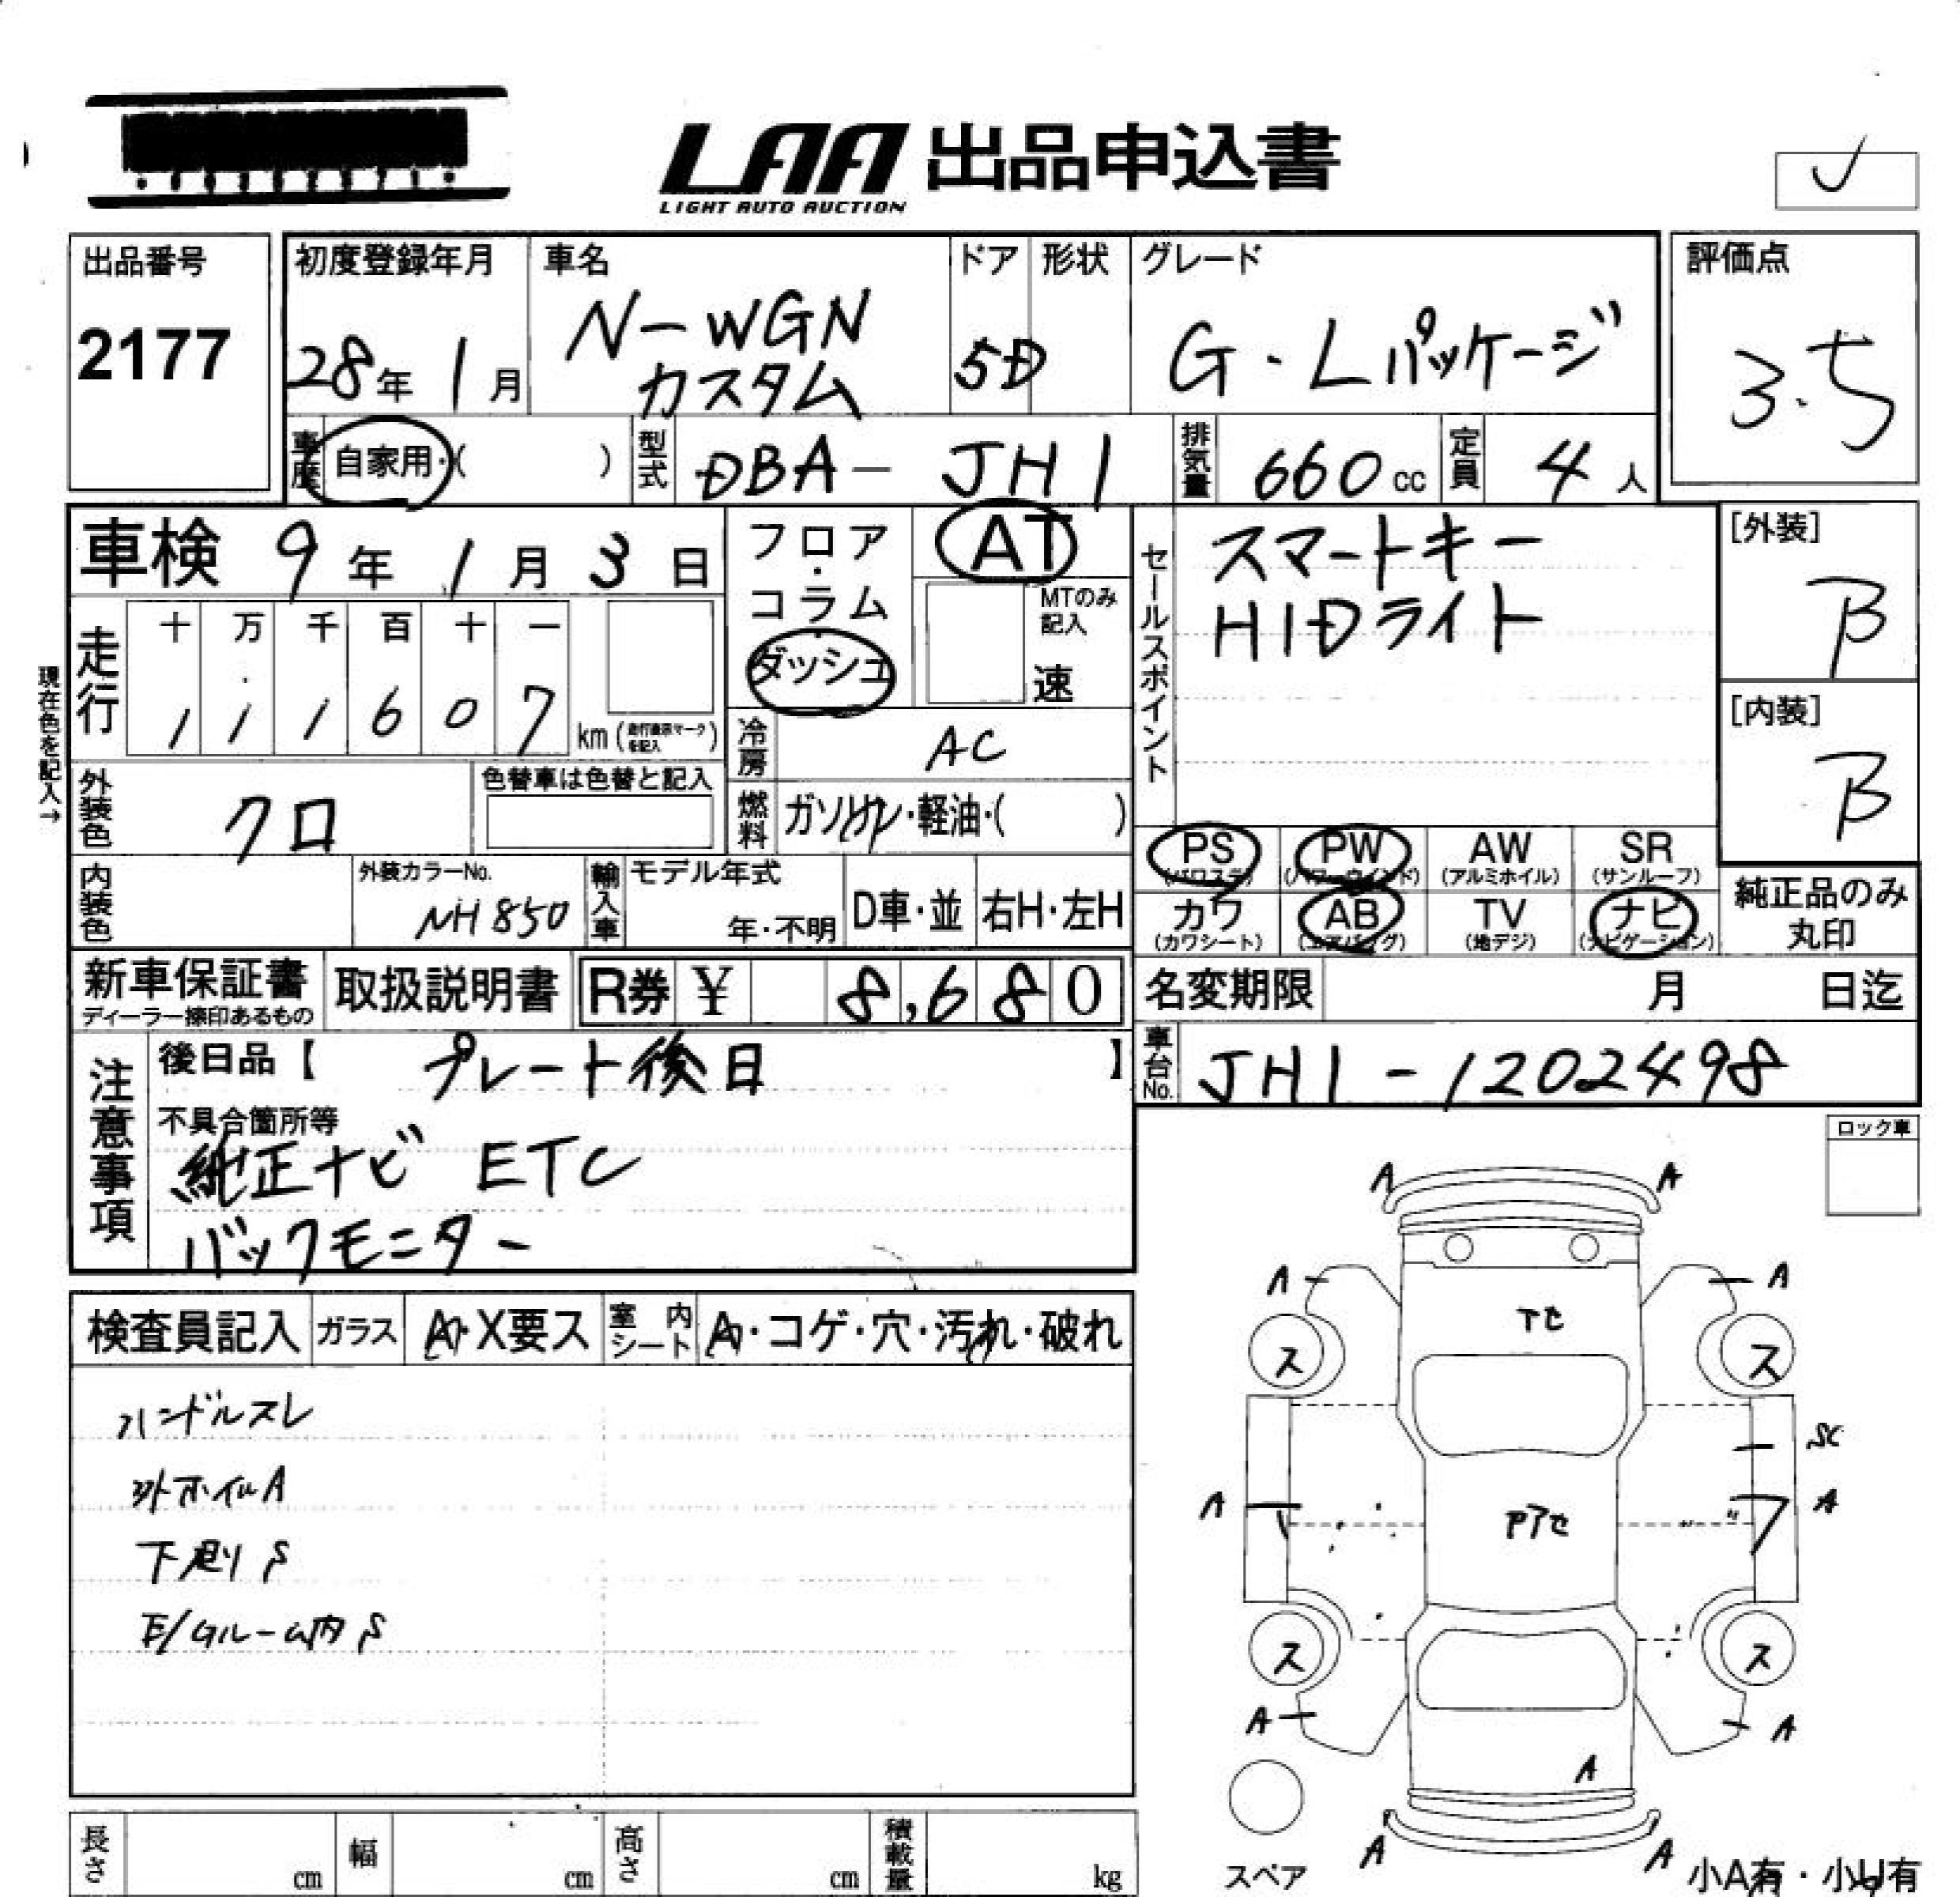 LAA 出品申込書
LIGHT AUTO AUCTION
出品番号
2177
初度登録年月
28年 1月
車名
N-WGN
カスタム
ドア
5D
形状
グレード
G・Lパッケージ
評価点
3.5
車歴
自家用・( )
型式
DBA- JH1
排気量
660cc
定員
4人
車検 9年 1月 3日
フロア・コラム・ダッシュ
AT
MTのみ記入
速
セールスポイント
スマートキー
HIDライト
[外装]
B
[内装]
B
現在色を記入→
走行
十 万 千 百 十 一
1 1 1 6 0 7
km(走行表示マークを記入)
冷房
AC
外装色
クロ
色替車は色替と記入
燃料
ガソリン・軽油・( )
PS
(パワステ)
PW
(パワーウインド)
AW
(アルミホイル)
SR
(サンルーフ)
内装色
外装カラーNo.
NH850
輸入車
モデル年式
年・不明
D車・並
右H・左H
カワ
(カワシート)
AB
(エアバッグ)
TV
(地デジ)
ナビ
(ナビゲーション)
純正品のみ
丸印
新車保証書
ディーラー捺印あるもの
取扱説明書
R券 ¥ 8,680
名変期限 月 日迄
注意事項
後日品【 プレート後日 】
車台No.
JH1-1202498
不具合箇所等
純正ナビ ETC
バックモニター
ロック車
検査員記入
ガラス
A・X要ス
室内シート
A・コゲ・穴・汚れ・破れ
ハンドルスレ
ホイルA
下廻りS
E/Gルーム内S
A A
A A
ス ス
SC
A A
ス ス
A A
A
A A
スペア
小A有・小U有
長さ cm
幅 cm
高さ cm
積載量 kg